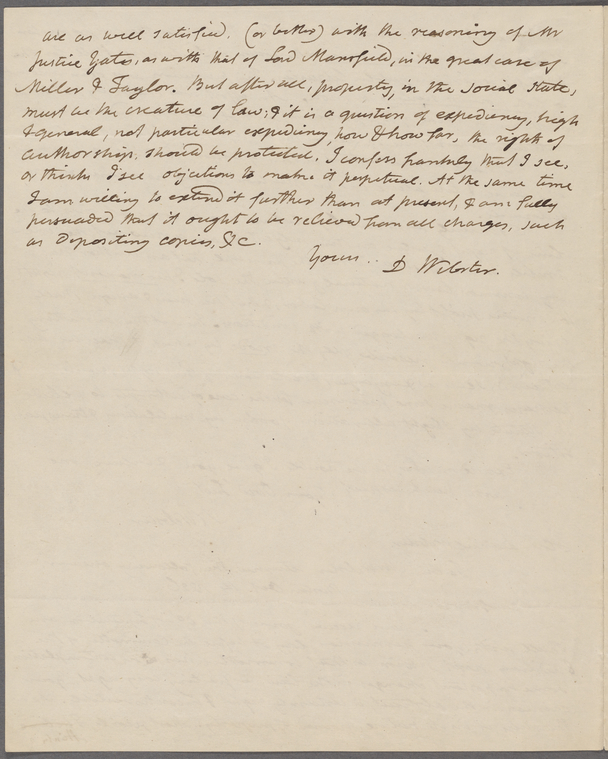 are as well satisfied, (or better) with the reasoning of Mr
Justice Yates, as with that of Lord Mansfield, in the great case of
Miller & Taylor. But after all, property, in the social state,
must be the creature of law; & it is a question of expediency, high
& general, not particular expediency, how & how far, the rights of
authorship, should be protected. I confess frankly that I see,
or think I see objections to make it perpetual. At the same time
I am willing to extend it further than at present, & am fully
persuaded that it ought to be relieved from all charges, such
as depositing copies, &c.
Yours..
D Webster.